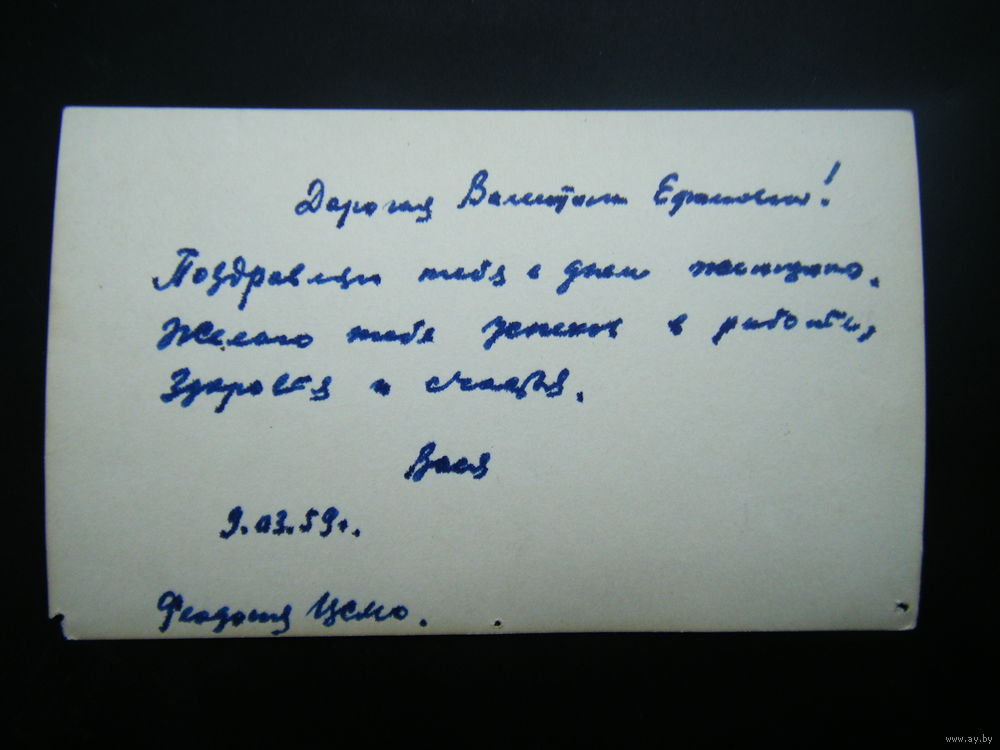 Дорогая Валентина Ефимовна!
Поздравляю тебя с днем женщины.
Желаю тебе успехов в работе,
здоровья и счастья.
Вася
9.03.59г.
Феодосия
www.ay.by